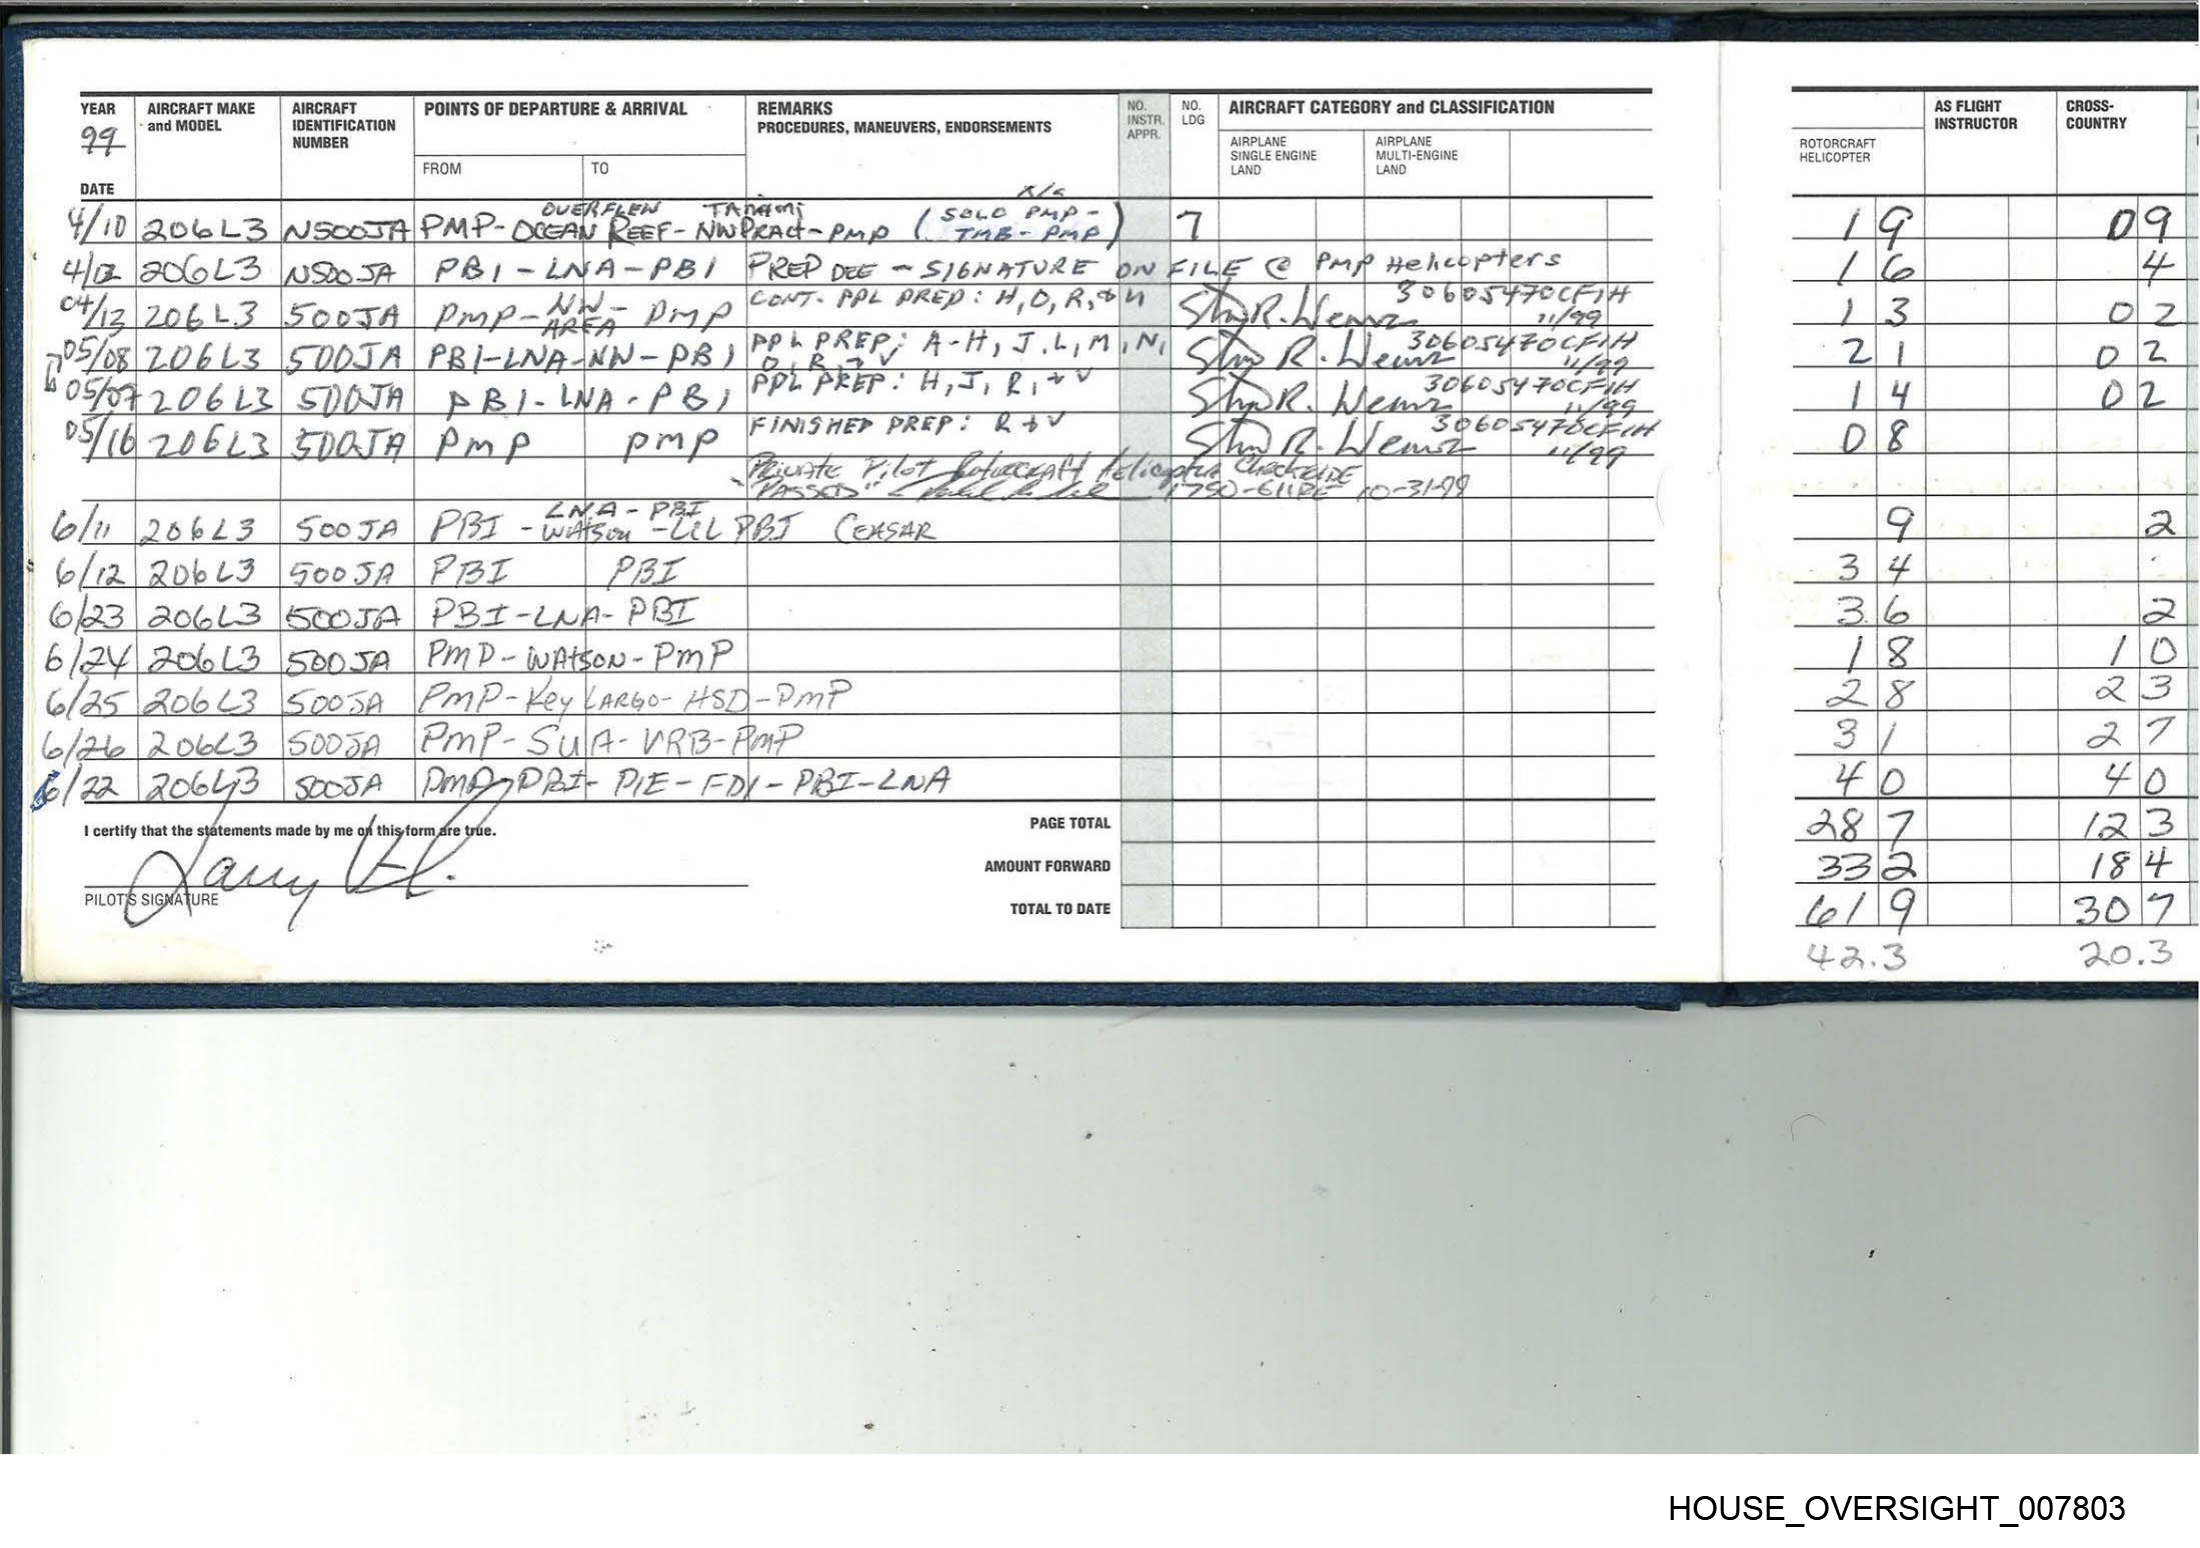 YEAR AIRCRAFT MAKE and MODEL AIRCRAFT IDENTIFICATION NUMBER POINTS OF DEPARTURE & ARRIVAL REMARKS PROCEDURES, MANEUVERS, ENDORSEMENTS NO. INSTR. APPR. NO. LDG AIRCRAFT CATEGORY and CLASSIFICATION AS FLIGHT INSTRUCTOR CROSS-COUNTRY
99 FROM TO AIRPLANE SINGLE ENGINE LAND AIRPLANE MULTI-ENGINE LAND ROTORCRAFT HELICOPTER
DATE
OVERFLEW TAMAMI X/C
4/10 206L3 N500JA PMP-OCEAN REEF-NW PRACT-PMP (SOLO PMP-TMB-PMP) 7 1 9 0 9
4/12 206L3 N500JA PBI-LNA-PBI PREP DEE - SIGNATURE ON FILE @ PMP Helicopters 1 6 4
04/13 206L3 500JA PMP-NW AREA-PMP CONT. PPL PREP: H, O, R, + U 30605470CFIH 11/99 1 3 0 2
05/08 206L3 500JA PBI-LNA-NW-PBI PPL PREP: A-H, J, L, M, N, O, R, + V 30605470CFIH 11/99 2 1 0 2
05/07 206L3 500JA PBI-LNA-PBI PPL PREP: H, J, R, + V 30605470CFIH 11/99 1 4 0 2
05/16 206L3 500JA PMP PMP FINISHED PREP: R + V 30605470CFIH 11/99 0 8
Private Pilot Rotorcraft Helicopter Checkride
"PASSED" 10-31-99
LNA-PBI
6/11 206L3 500JA PBI-WATSON-LCL PBI CEASAR 9 2
6/12 206L3 500JA PBI PBI 3 4
6/23 206L3 500JA PBI-LNA-PBI 3 6 2
6/24 206L3 500JA PMP-WATSON-PMP 1 8 1 0
6/25 206L3 500JA PMP-Key LARGO-HSD-PMP 2 8 2 3
6/26 206L3 500JA PMP-SUA-VRB-PMP 3 1 2 7
6/22 206L3 500JA PMP-PBI-PIE-FDI-PBI-LNA 4 0 4 0
I certify that the statements made by me on this form are true. PAGE TOTAL 28 7 12 3
AMOUNT FORWARD 33 2 18 4
PILOT'S SIGNATURE TOTAL TO DATE 61 9 30 7
42.3 20.3
HOUSE_OVERSIGHT_007803